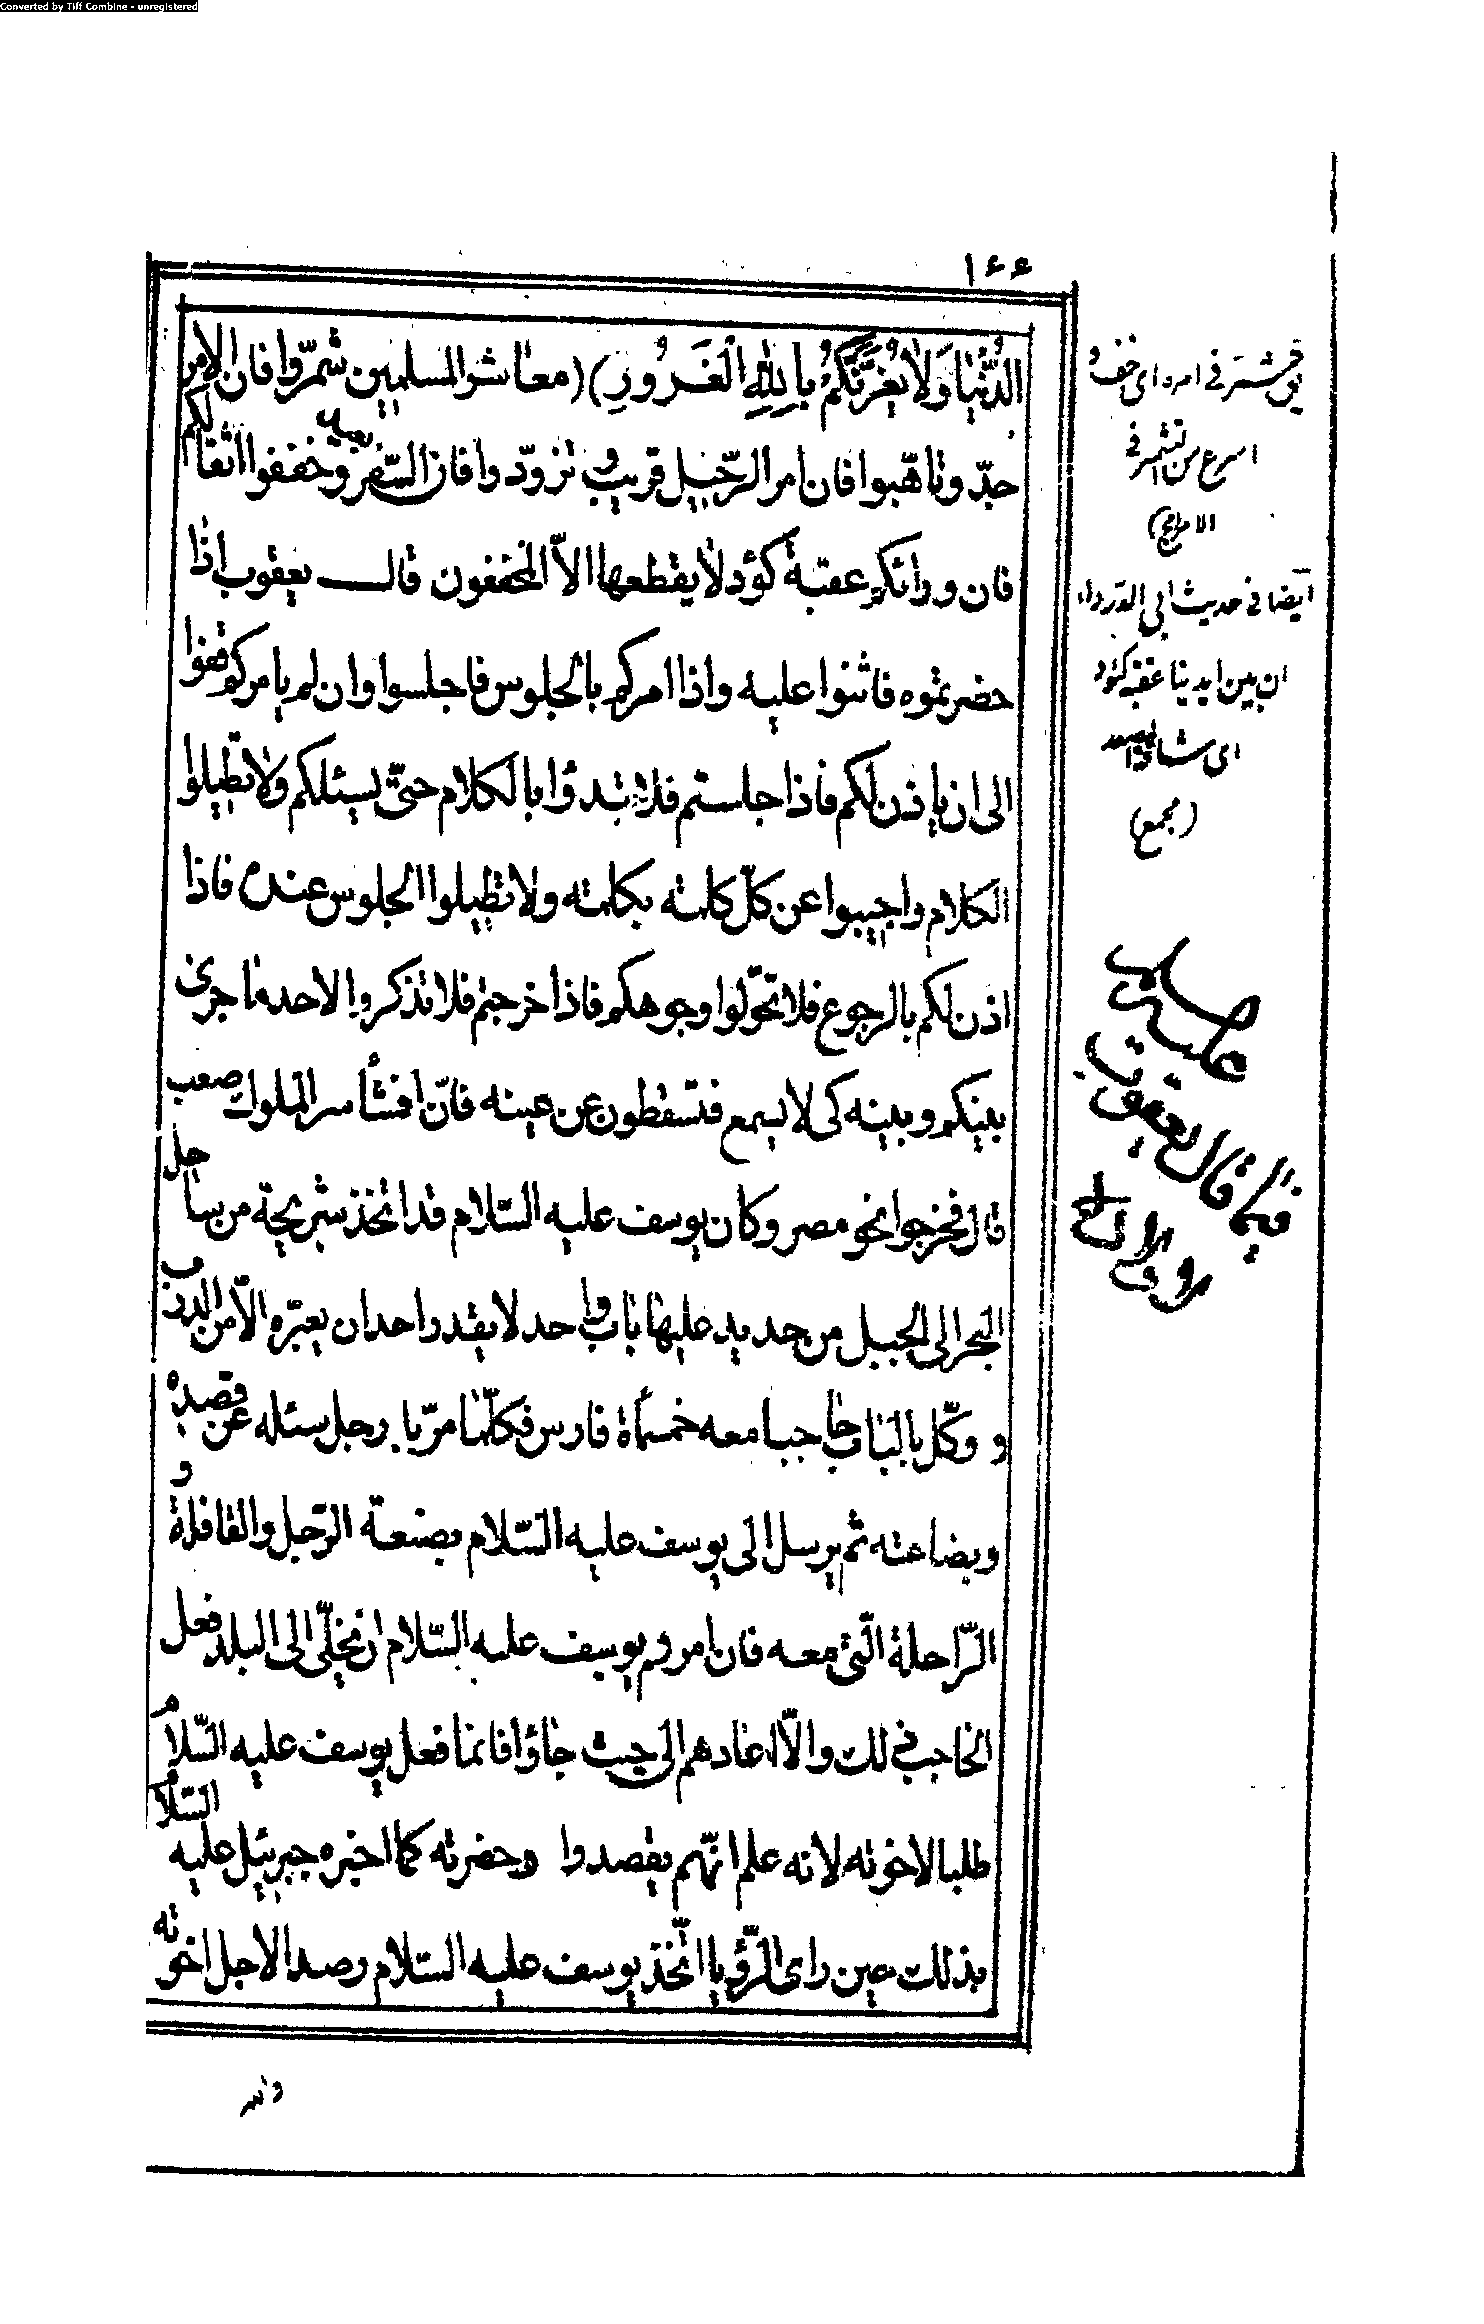 Converted by Tiff Combine - unregistered
١٤٤
الدُّنْيَا وَلَا يَغُرَّنَّكُمْ بِاللّٰهِ الْغَرُورِ) (معاشر المسلمين شمّروا فان الامر
جدّ وتاهّبوا فان امر الرّحيل قريب وتزوّدوا فان السّفر بعيد وخففوا اثقالكم
فان ورائكم عقبة كؤد لا يقطعها الّا المخففون قال يعقوب اذا
حضرتموه فاثنوا عليه واذا امركم بالجلوس فاجلسوا وان لم يامركم قفوا
الى ان ياذن لكم فاذا جلستم فلا تبتدؤا بالكلام حتّى يسئلكم ولا تطيلوا
الكلام واجيبوا عن كلّ كلمته بكلمته ولا تطيلوا الجلوس عنده فاذا
اذن لكم بالرجوع فلا تحوّلوا وجوهكم فاذا خرجتم فلا تذكروا لاحد ما جرى
بينكم وبينه كى لا يسمع فتسقطون عن عينه فانّ افشأ سر الملوك صعب
قال فخرجوا نحو مصر وكان يوسف عليه السّلام قد اتخذ شريجة من ساحل
البحر الى الجبل من حديد عليها باب واحد لا يقدر احد ان يعبّره الّا من الدرب
و وكّل بالباب حاجبا معه خمسمأة فارس فكلّما مرّ با رجل سئله عن قصده
و
وبضاعته ثم يرسل الى يوسف عليه السّلام بصنعة الرّجل والقافلة
الرّاحلة الّتى معه فان امرهم يوسف عليه السّلام ان يخلّى الى البلد فعل
الحاجب ذلك والّا اعادهم الى حيث جاؤا فانما فعل يوسف عليه السّلام
طلبا لاخوته لانه علم انّهم يقصدوا حضرته كما اخبره جبرئيل عليه السّلام
بذلك حين راى الرّؤيا اتّخذ يوسف عليه السّلام رصدا لاجل اخوته
شمّر فى امره اى خف و
اسرع من التشمر فى
الامر (مجمع)
ايضا فى حديث ابى الدرداء
ان بين ايدينا عقبة كئود
اى شاقة المصعد
(مجمع)
فيما قال يعقوب